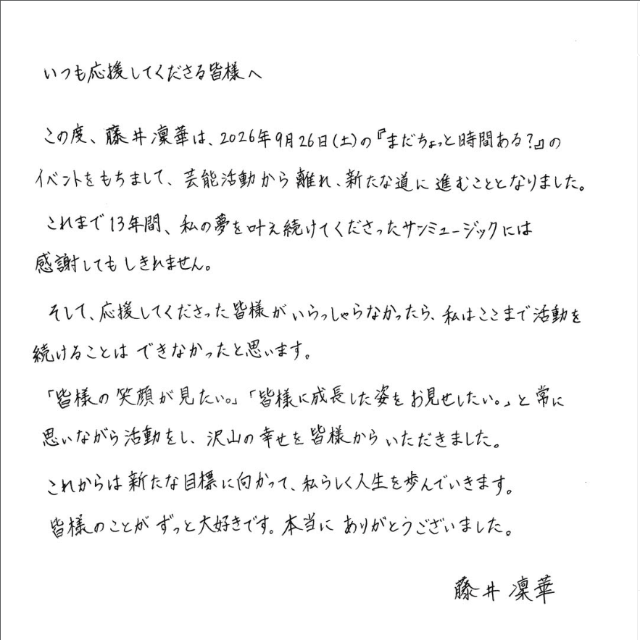 いつも応援してくださる皆様へ
この度、藤井凜華は、2026年9月26日(土)の『まだちょっと時間ある?』の
イベントをもちまして、芸能活動から離れ、新たな道に進むこととなりました。
これまで13年間、私の夢を叶え続けてくださったサンミュージックには
感謝してもしきれません。
そして、応援してくださった皆様がいらっしゃらなかったら、私はここまで活動を
続けることはできなかったと思います。
「皆様の笑顔が見たい。」「皆様に成長した姿をお見せしたい。」と常に
思いながら活動をし、沢山の幸せを皆様からいただきました。
これからは新たな目標に向かって、私らしく人生を歩んでいきます。
皆様のことがずっと大好きです。本当にありがとうございました。
藤井凜華